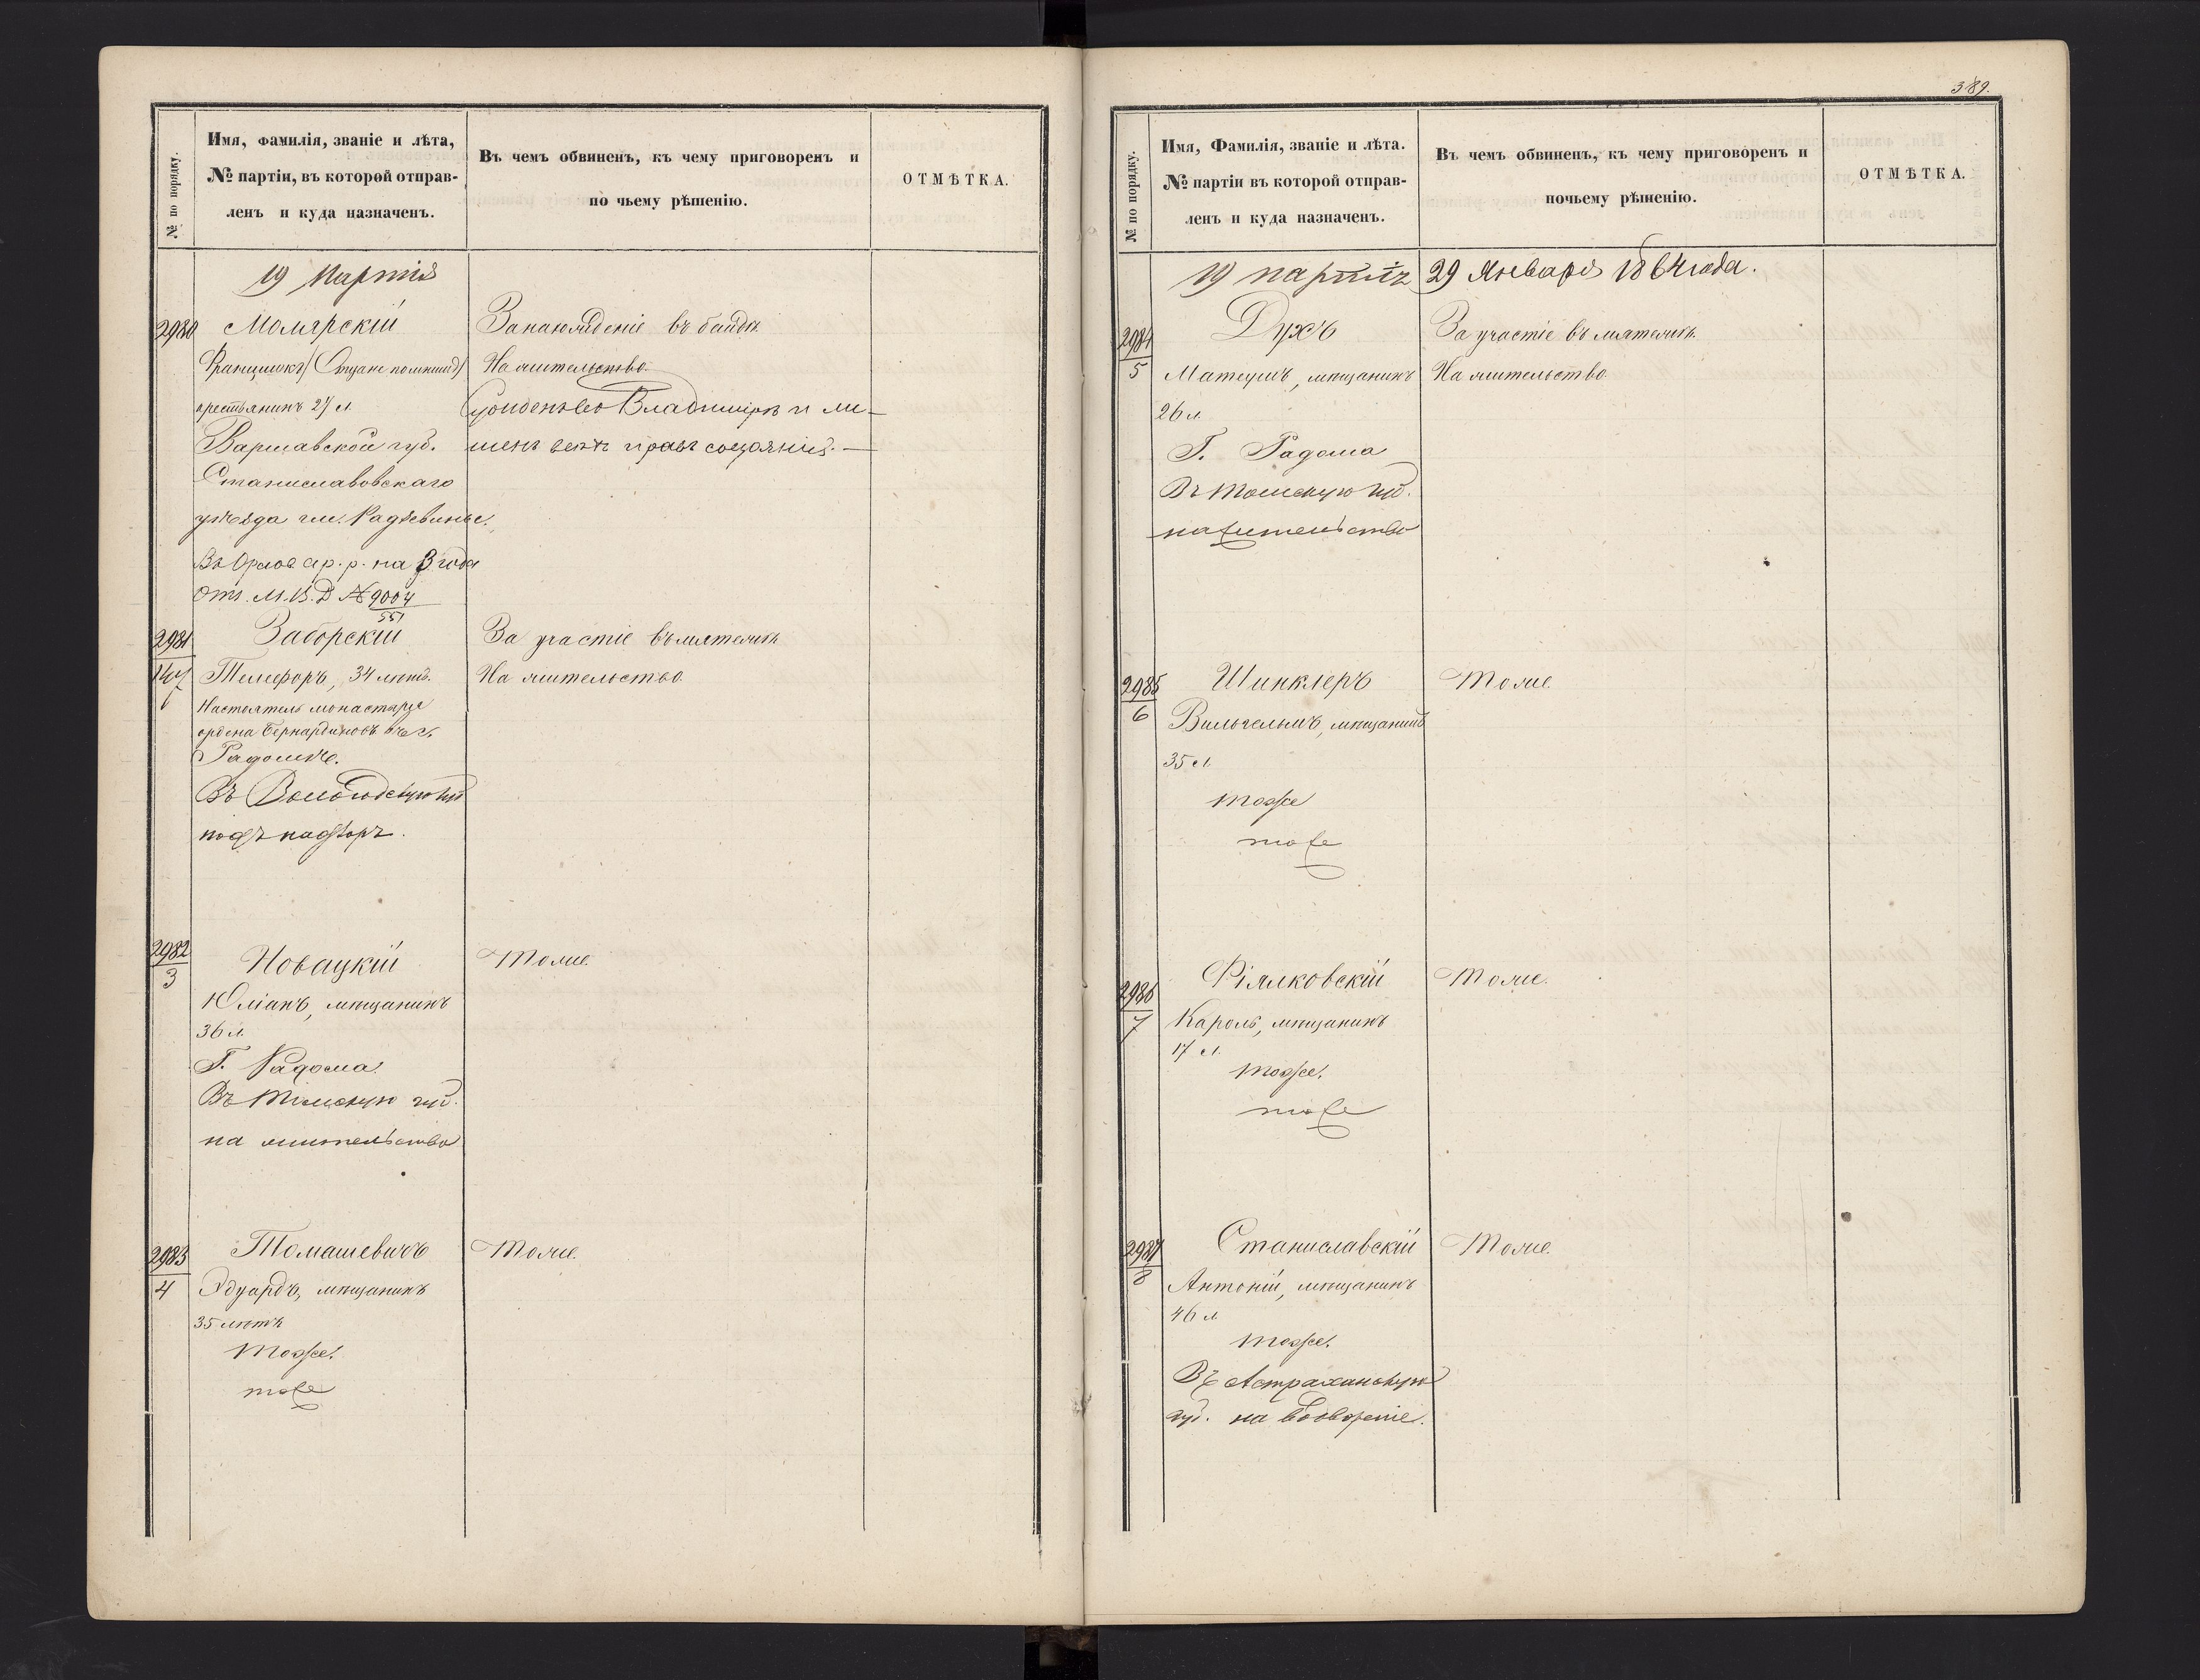 № по порядку.
Имя, Фамилія, званіе и лѣта,
№ партіи, въ которой отправ-
ленъ и куда назначенъ.
Въ чемъ обвиненъ, къ чему приговоренъ и
по чьему рѣшенію.
ОТМѢТКА.
19 партія
2980 Молярскій
Занахожденіе въ бандѣ.
Францишекъ (Отцане помнитъ)
На жительство.
крестьянинъ 27 л.
Сужденъ во Владимірѣ и ли-
Варшавской губ.
шенъ всѣхъ правъ состоянія.—
Станиславовскаго
уѣзда гм. Радзевинье.
Въ Орлов ар. р. на 3 года
Отн. М.В.Д № 9004
551
2981 Заборскій
За участіе въ мятежѣ
147 Телефоръ, 34 лѣтъ.
На жительство
6
Настоятель монастыря
ордена Бернардиновъ въ г.
Радомѣ.
Въ Вологодскую губ
подъ надзоръ.
2982
3
Новацкій
Тоже.
Юліанъ, мѣщанинъ
36 л.
Г. Радома.
Въ Томскую губ.
на жительство
2983
4
Томашевичъ
Тоже.
Эдуардъ, мѣщанинъ
35 лѣтъ
тоже.
тоже
389.
№ по порядку.
Имя, Фамилія, званіе и лѣта.
№ партіи въ которой отправ-
ленъ и куда назначенъ.
Въ чемъ обвиненъ, къ чему приговоренъ и
почьему рѣшенію.
ОТМѢТКА.
19 партія 29 Января 1864 года.
2984
5
Духъ
За участіе въ мятежѣ.
Матеушъ, мѣщанинъ
На жительство.
26 л.
Г. Радома
Въ Томскую губ.
на жительство
2985
6
Шинклеръ
Тоже.
Вильгельмъ, мѣщанинъ
35 л.
тоже
тоже
2986
7
Фіялковскій
Тоже.
Кароль, мѣщанинъ
17 л.
тоже.
тоже
2987
8
Станиславскій
Тоже.
Антоній, мѣщанинъ
46 л
тоже.
Въ Астраханскую
губ. на водвореніе.